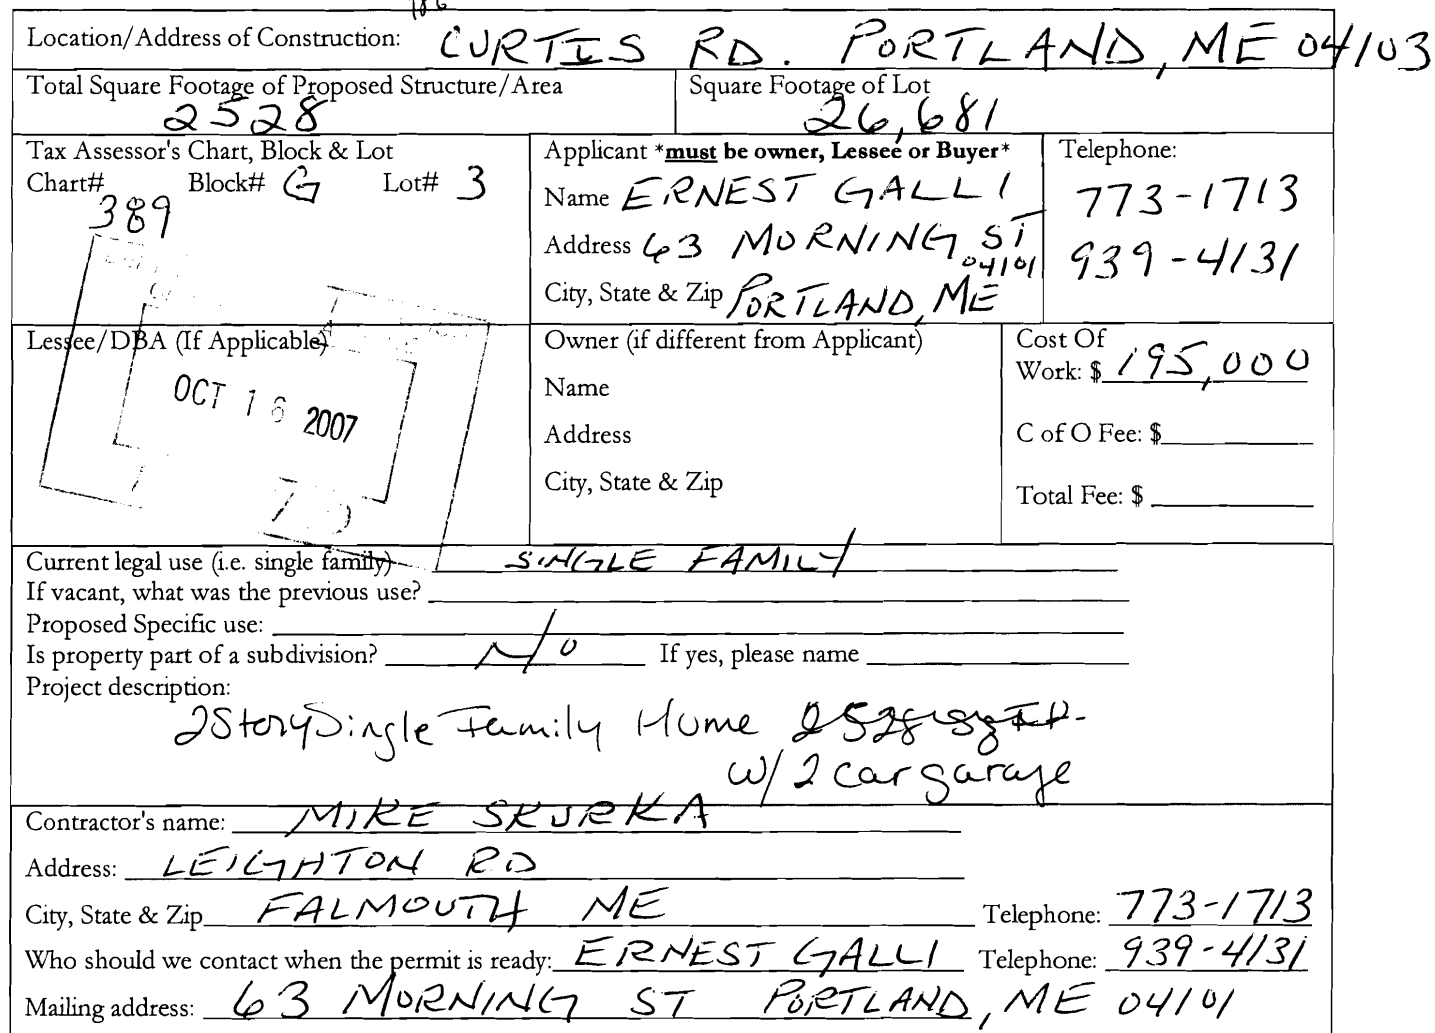 186
Location/Address of Construction: CURTIS RD. PORTLAND, ME 04103
Total Square Footage of Proposed Structure/Area 2528
Square Footage of Lot 26,681
Tax Assessor's Chart, Block & Lot
Chart# 389 Block# G Lot# 3
Applicant *must be owner, Lessee or Buyer*
Name ERNEST GALLI
Address 63 MORNING ST
04101
City, State & Zip PORTLAND, ME
Telephone:
773-1713
939-4131
Lessee/DBA (If Applicable)
OCT 16 2007
Owner (if different from Applicant)
Name
Address
City, State & Zip
Cost Of
Work: $ 195,000
C of O Fee: $
Total Fee: $
Current legal use (i.e. single family) SINGLE FAMILY
If vacant, what was the previous use?
Proposed Specific use:
Is property part of a subdivision? N/O If yes, please name
Project description:
2 Story Single Family Home 2528 sq FT.
w/ 2 car garage
Contractor's name: MIKE SKURKA
Address: LEIGHTON RD
City, State & Zip FALMOUTH ME Telephone: 773-1713
Who should we contact when the permit is ready: ERNEST GALLI Telephone: 939-4131
Mailing address: 63 MORNING ST PORTLAND, ME 04101